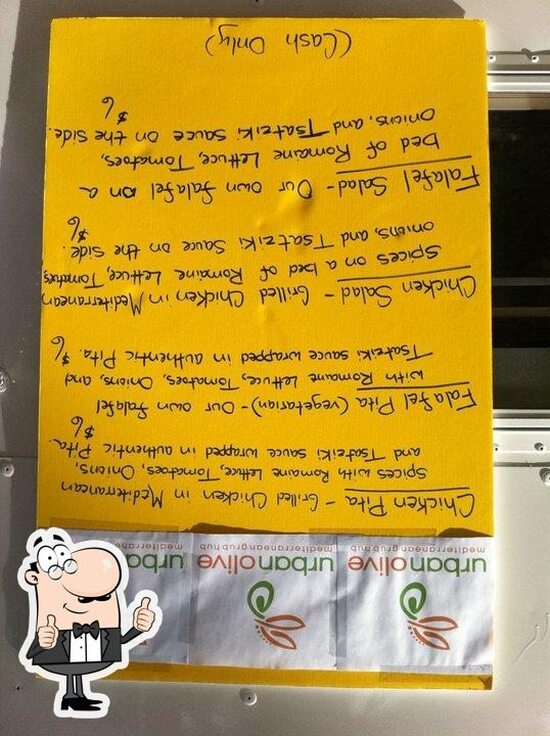 urbanolive
mediterranean grub hub
urbanolive
mediterranean grub hub
mediterranean
Chicken Pita - Grilled Chicken in Mediterranean
spices with Romaine Lettuce, Tomatoes, Onions,
and Tsatziki sauce wrapped in authentic Pita.
$6
Falafel Pita (vegetarian) - Our own falafel
with Romaine Lettuce, Tomatoes, Onions, and
Tsatziki sauce wrapped in authentic Pita. $6
Chicken Salad - Grilled Chicken in Mediterranean
spices on a bed of Romaine Lettuce, Tomatoes,
onions, and Tsatziki Sauce on the side.
$6
Falafel Salad - Our own falafel on a
bed of Romaine Lettuce, Tomatoes,
onions, and Tsatziki sauce on the side.
$6
(Cash Only)